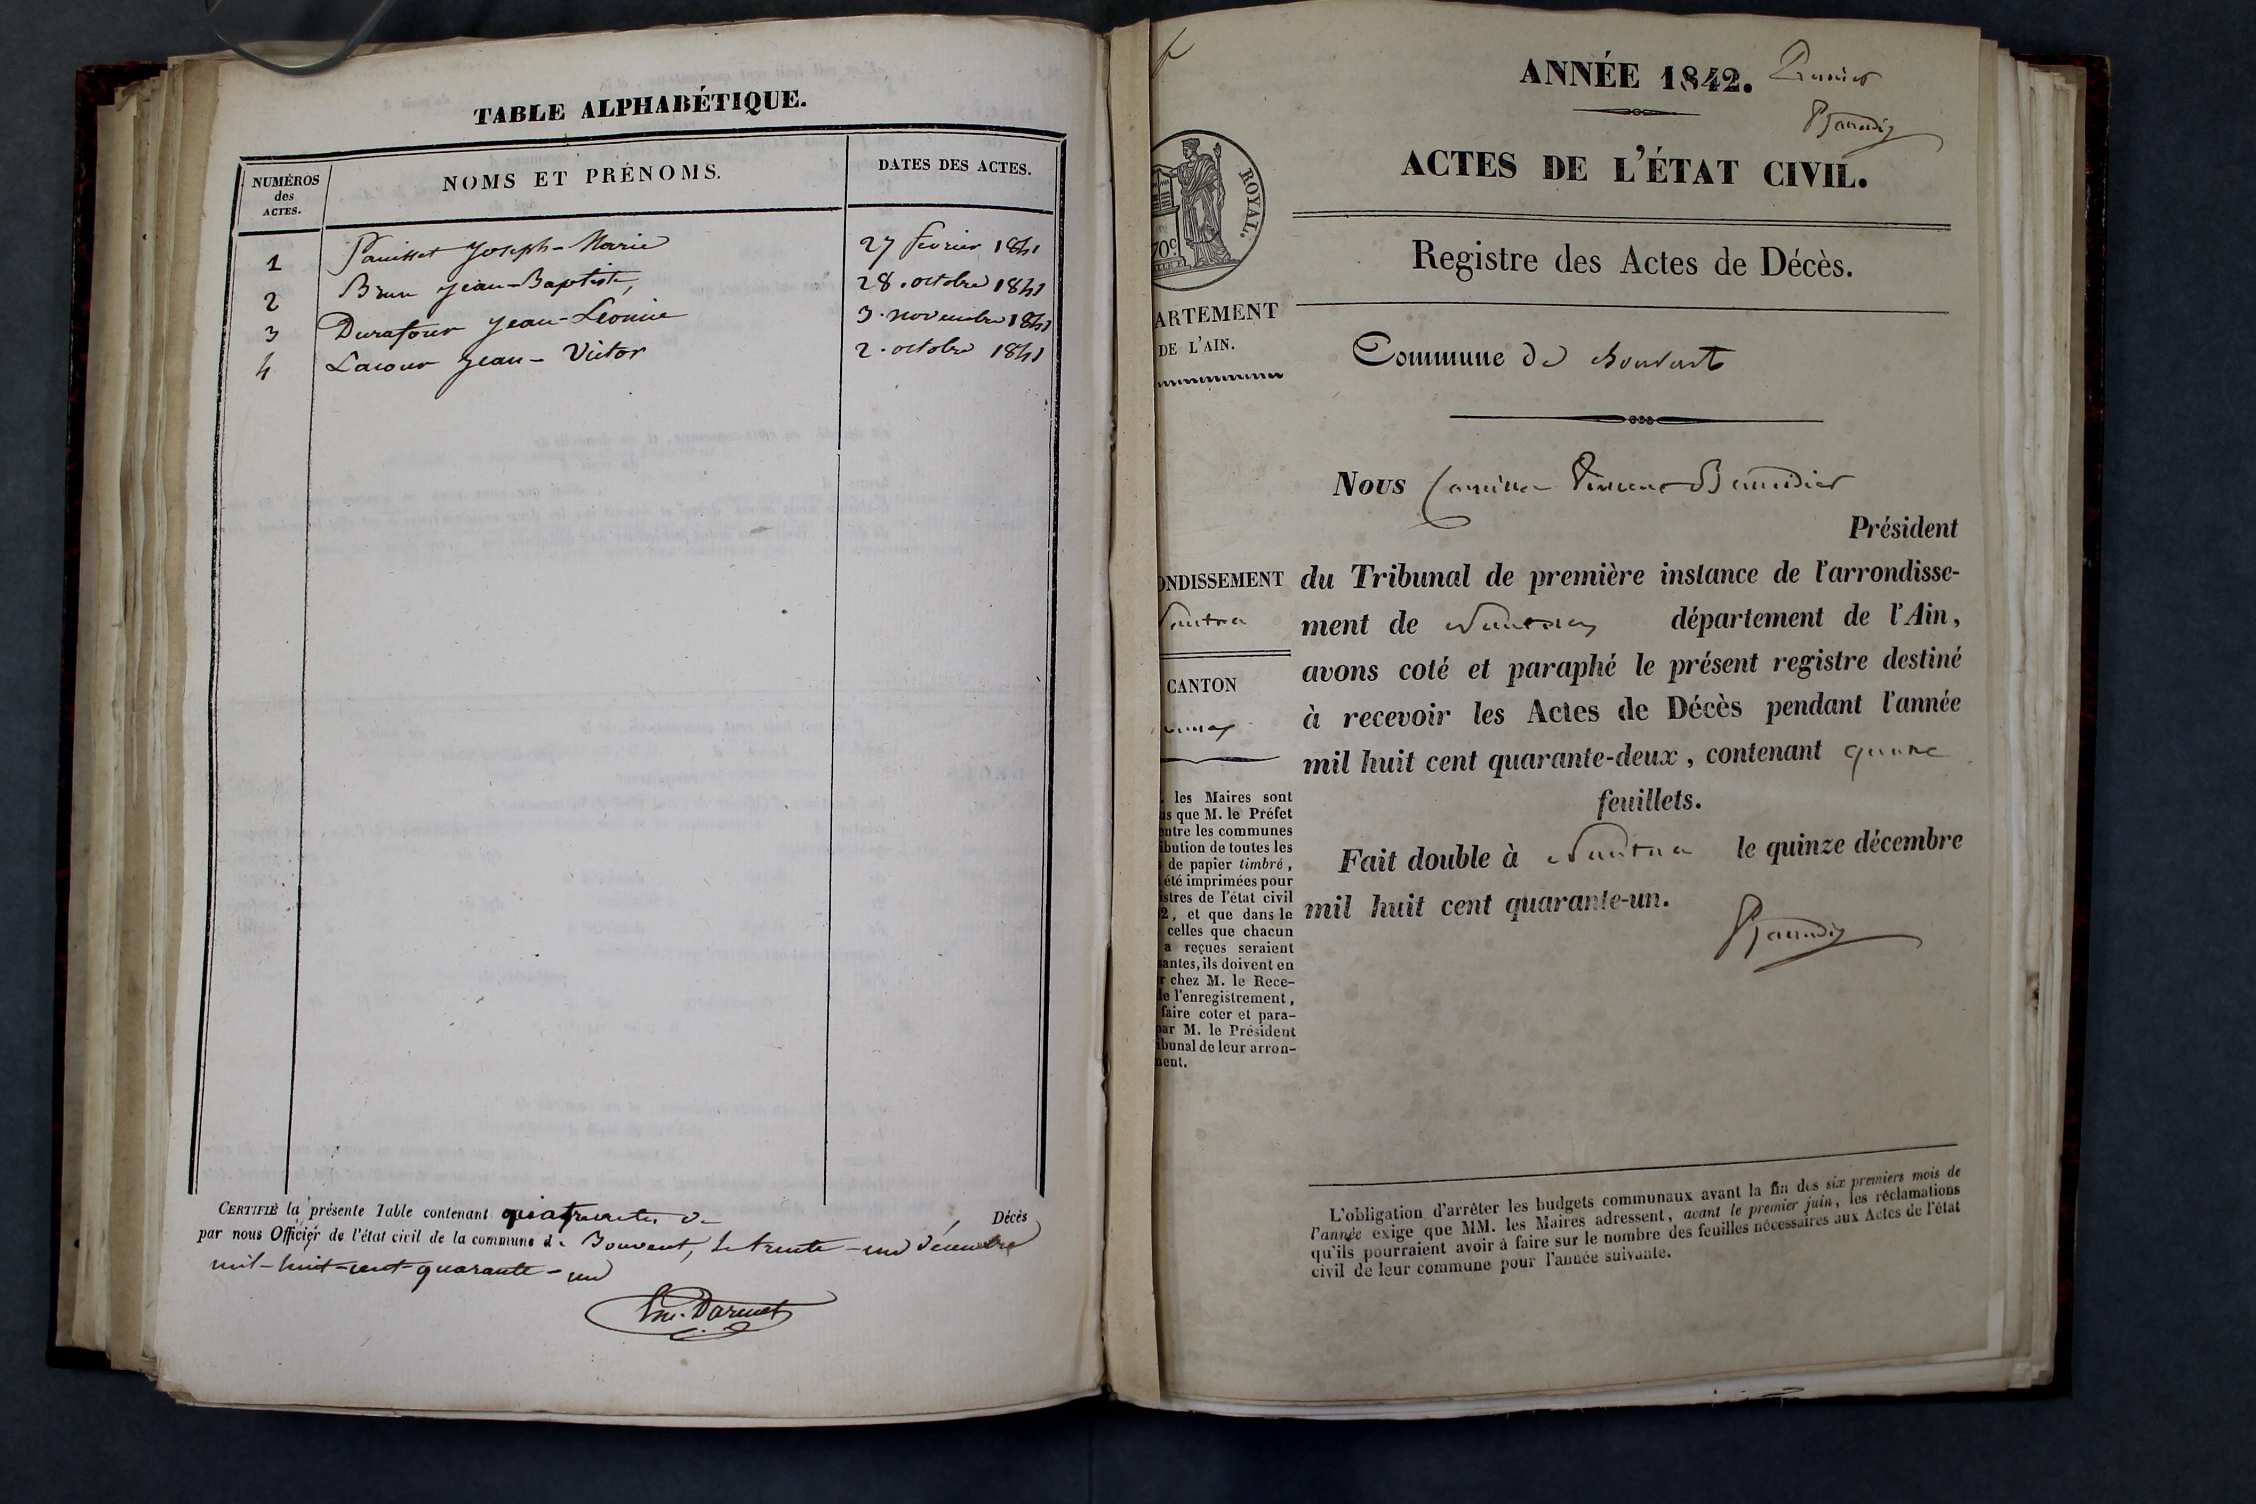 TABLE ALPHABÉTIQUE.
NUMÉROS
des
ACTES.
NOMS ET PRÉNOMS.
DATES DES ACTES.
1 Joseph-Marie 27 février 1841
2 Brun Jean-Baptiste, 28. octobre 1841
3 Durafour Jean-Leonnie 3. novembre 1841
4 Lacour Jean-Victor 2. octobre 1841
CERTIFIÉ la présente Table contenant quatre actes de Décès
par nous Officier de l'état civil de la commune de Bouvent, le trente-un décembre
mil-huit-cent-quarante-un
Darmet
ANNÉE 1842. Premier
ACTES DE L'ÉTAT CIVIL.
ROYAL.
70c
Registre des Actes de Décès.
ARTEMENT
DE L'AIN.
Commune de Bouvent
Nous Camille Vincent Baudier
Président
ONDISSEMENT
Nantua
CANTON
du Tribunal de première instance de l'arrondisse-
ment de Nantua département de l'Ain,
avons coté et paraphé le présent registre destiné
à recevoir les Actes de Décès pendant l'année
mil huit cent quarante-deux, contenant
feuillets.
Fait double à Nantua le quinze décembre
mil huit cent quarante-un.
. les Maires sont
us que M. le Préfet
entre les communes
ibution de toutes les
s de papier timbré,
été imprimées pour
istres de l'état civil
2, et que dans le
celles que chacun
a reçues seraient
santes, ils doivent en
r chez M. le Rece-
de l'enregistrement,
faire coter et para-
par M. le Président
ibunal de leur arron-
ment.
L'obligation d'arrêter les budgets communaux avant la fin des six premiers mois de
l'année exige que MM. les Maires adressent, avant le premier juin, les réclamations
qu'ils pourraient avoir à faire sur le nombre des feuilles nécessaires aux Actes de l'état
civil de leur commune pour l'année suivante.